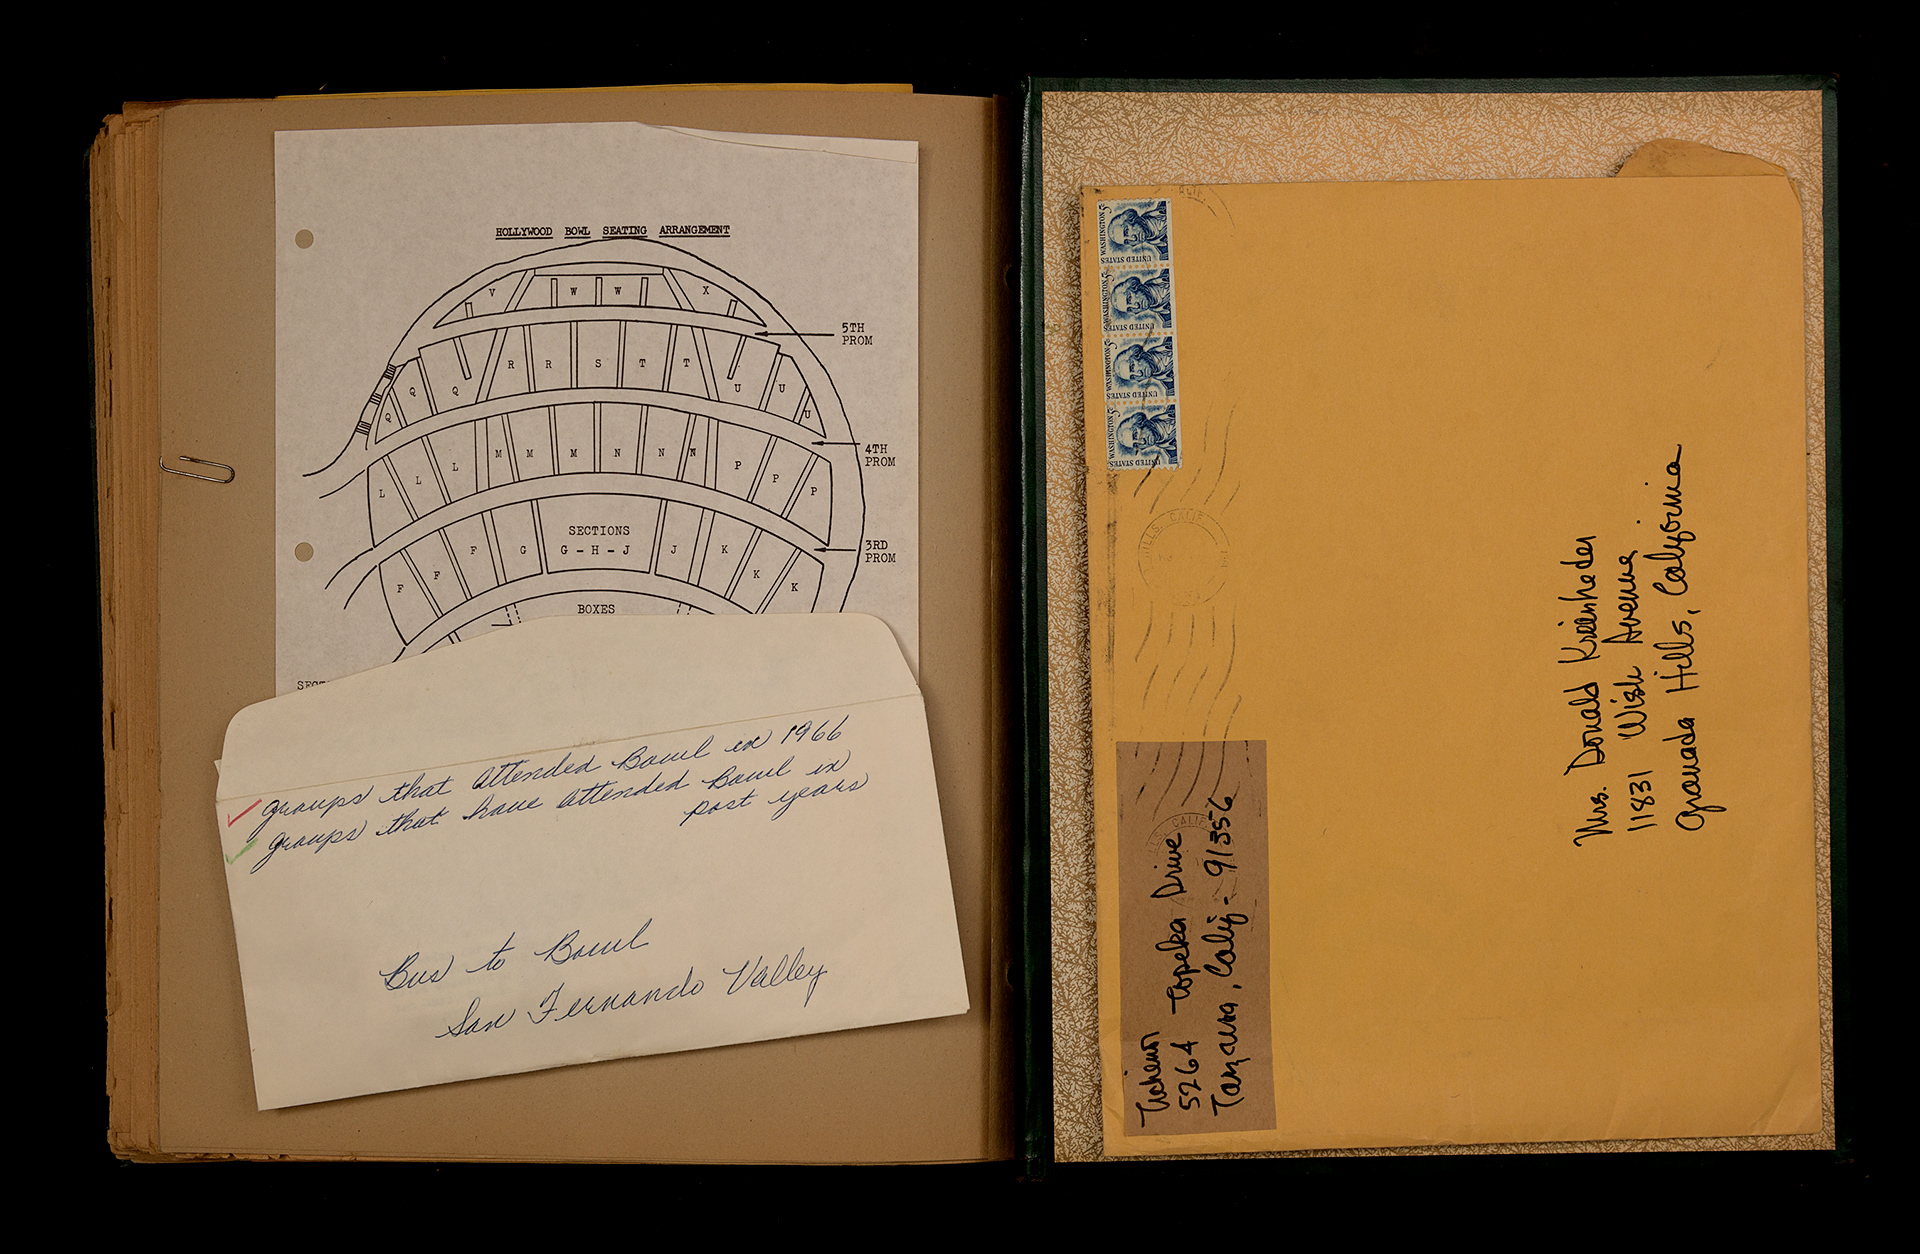 HOLLYWOOD BOWL SEATING ARRANGEMENT
V W W X
5TH
PROM
Q Q Q R R S T T U U U
4TH
PROM
L L L M M M N N N P P P
3RD
PROM
SECTIONS
F F F G G - H - J J K K K
BOXES
groups that attended Bowl in 1966
groups that have attended Bowl in
past years
Bus to Bowl
San Fernando Valley
WASHINGTON 5¢
UNITED STATES
WASHINGTON 5¢
UNITED STATES
WASHINGTON 5¢
UNITED STATES
WASHINGTON 5¢
UNITED STATES
HILLS, CALIF.
5264 Topeka Drive
Tarzana, Calif - 91356
Mrs. Donald
11831 Wish Avenue
Granada Hills, California